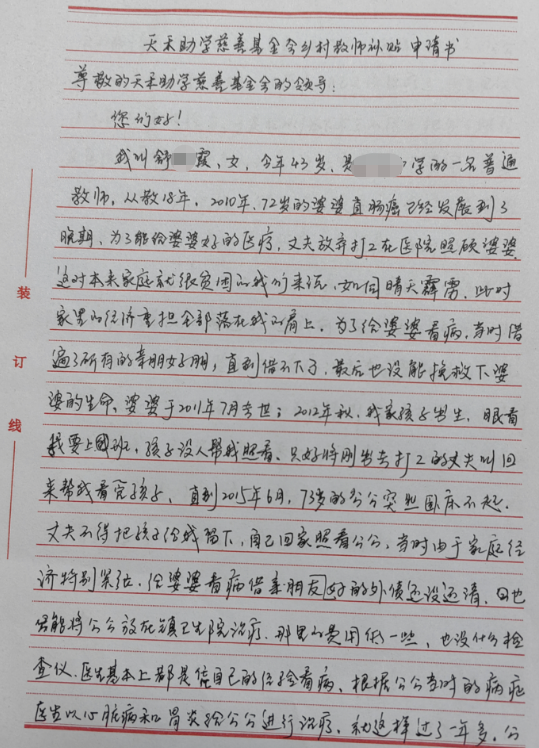 天禾助学慈善基金会乡村教师补贴申请书
尊敬的天禾助学慈善基金会的领导:
您们好!
我叫舒霞、女、今年43岁、是学的一名普通
教师,从教18年,2010年、72岁的婆婆直肠癌已经发展到了
晚期、为了能给婆婆好的医疗,丈夫放弃打工在医院照顾婆婆
这对本来家庭就很贫困的我们来说,如同晴天霹雳、此时
家里的经济重担全部落在我的肩上,为了给婆婆看病,当时借
遍了所有的亲朋好朋,直到借不下了,最后也没能挽救下婆
婆的生命、婆婆于2011年7月去世;2012年秋,我家孩子出生,眼看
我要上班,孩子没人帮我照看、只好将刚出去打工的丈夫叫回
来帮我看完孩子、直到2015年6月,73岁的公公突然卧床不起.
丈夫不得把孩子给我留下,自己回家照看公公,当时由于家庭经
济特别紧张,给婆婆看病借亲朋友好的外债还没还清、因也
只能将公公放在镇卫生院治疗、那里的费用低一些,也没什么检
查仪、医生基本上都是凭自己的经验看病、根据公公当时的病症
医生以心脏病和胃炎给公公进行治疗,就这样过了一年多,公
装
订
线